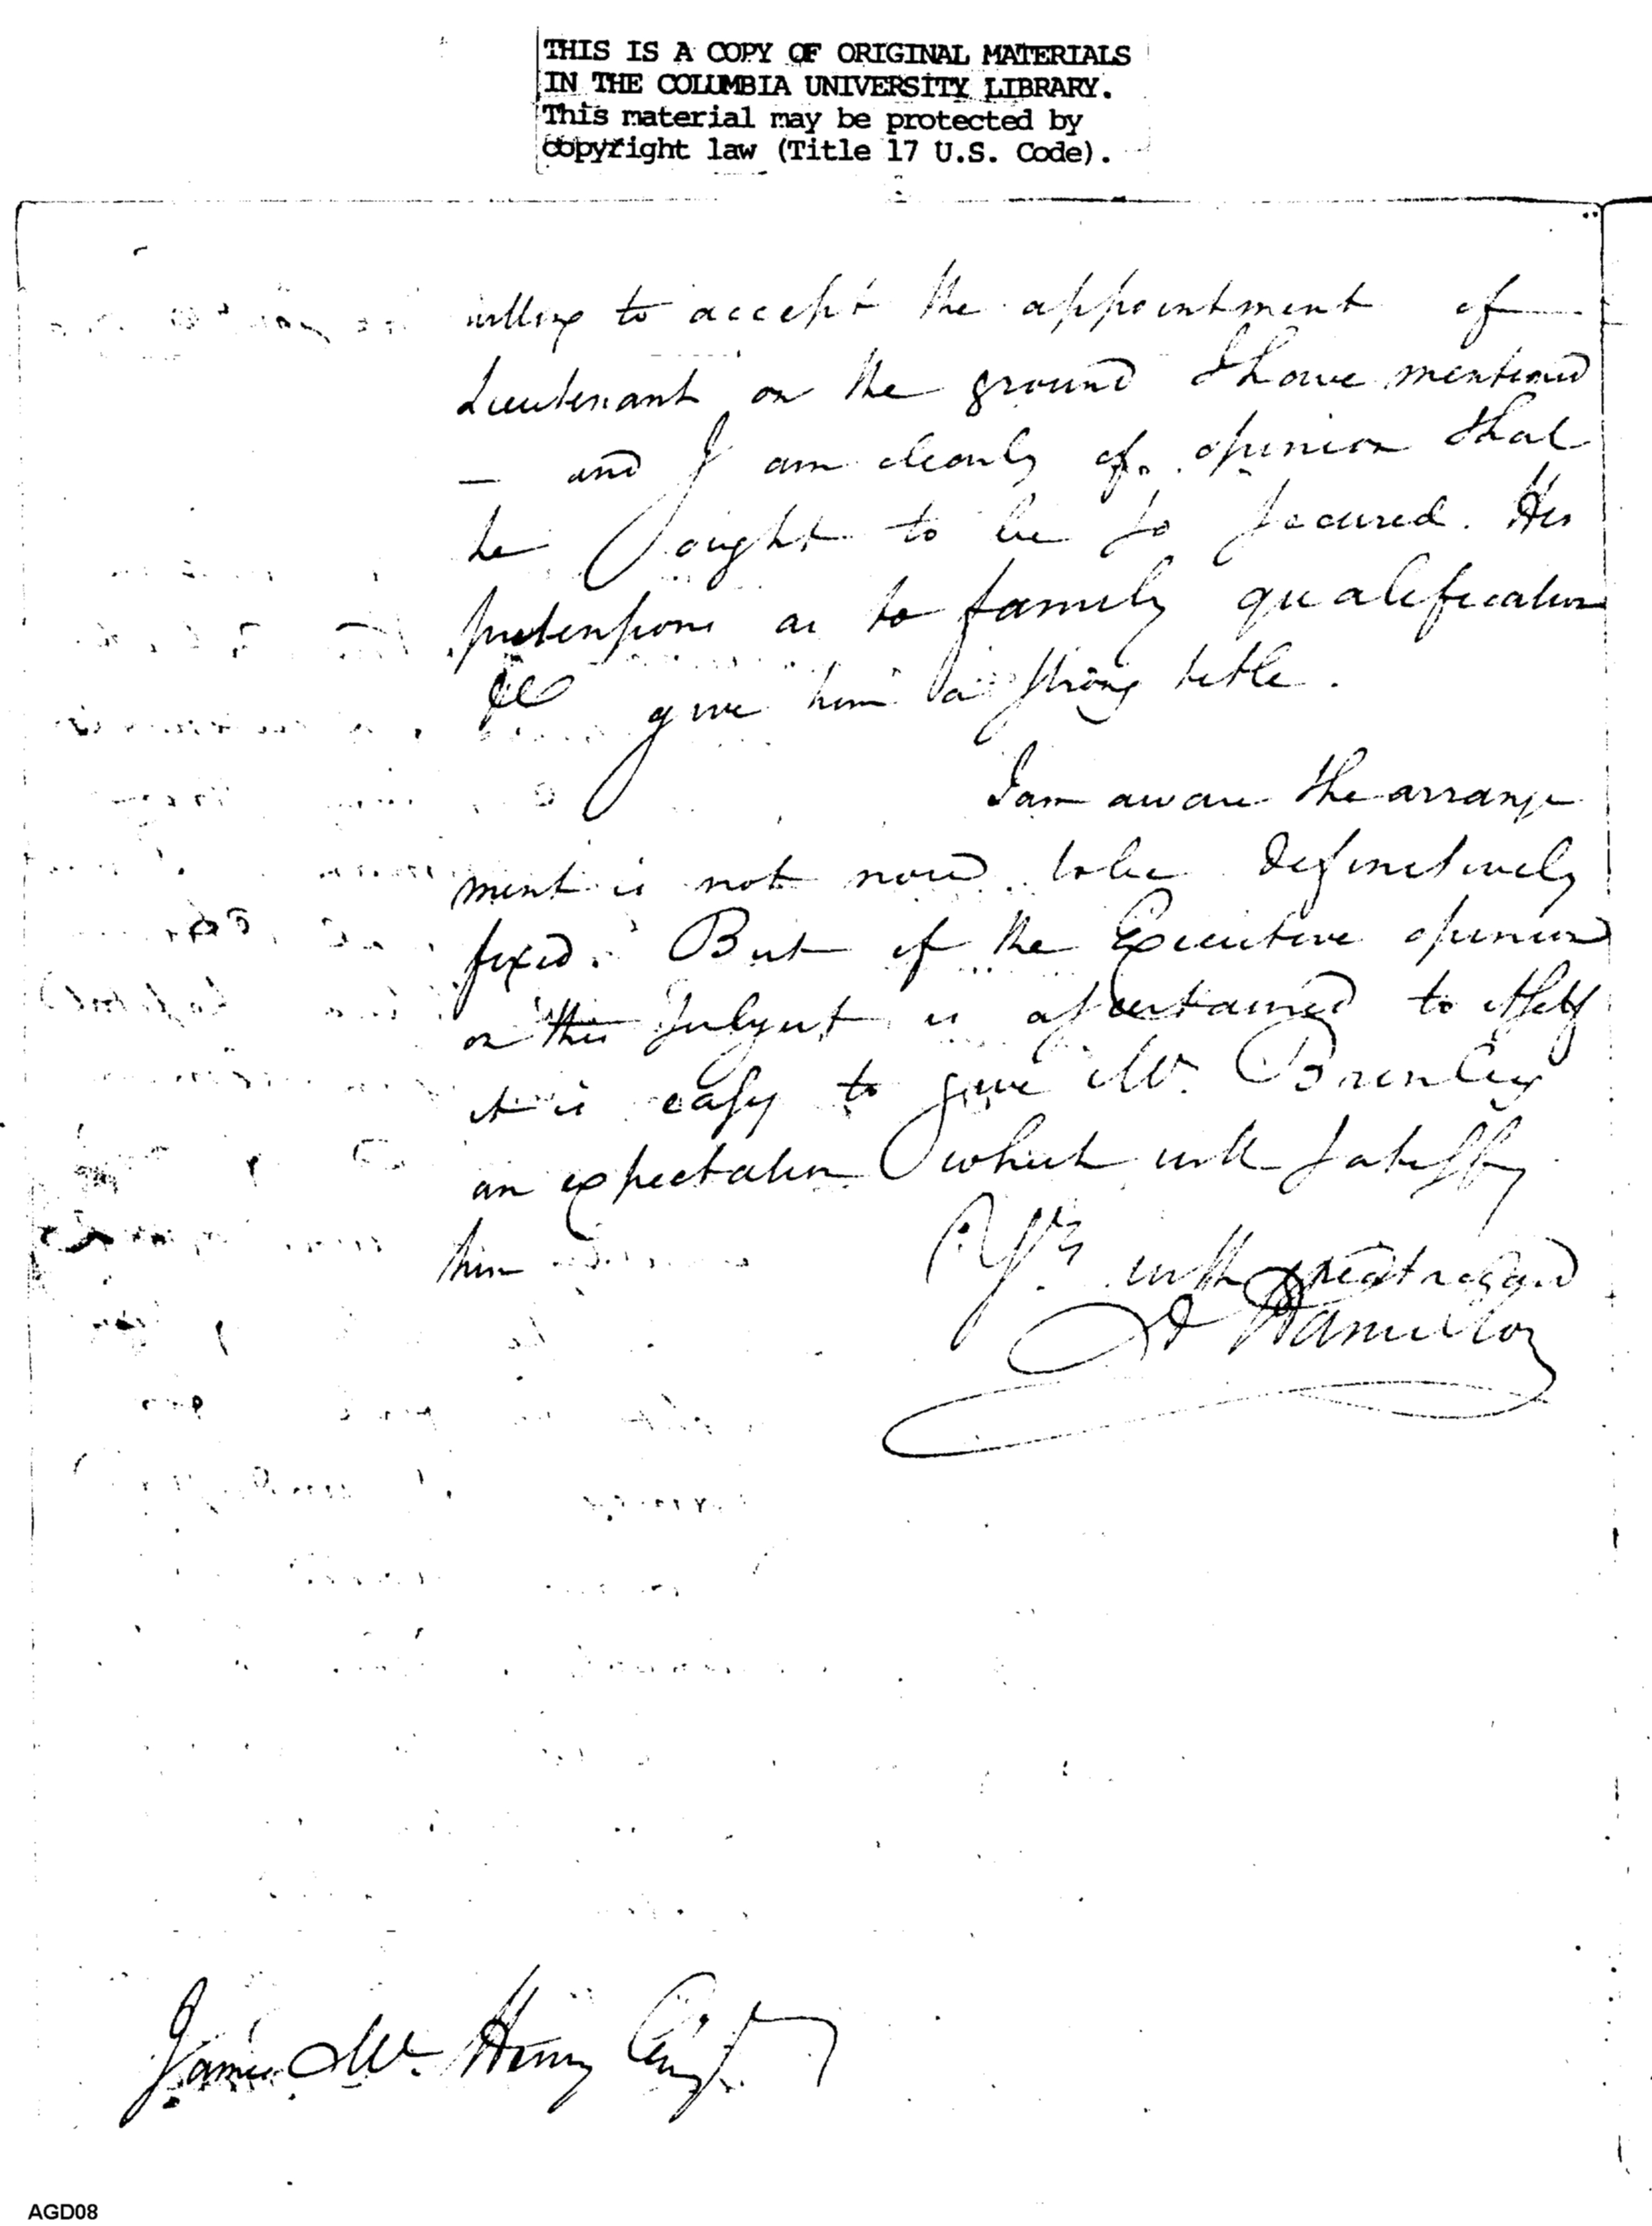 THIS IS A COPY OF ORIGINAL MATERIALS
IN THE COLUMBIA UNIVERSITY LIBRARY.
This material may be protected by
copyright law (Title 17 U.S. Code).
willing to accept the appointment of
Lieutenant on the ground I have mentioned
— and I am clearly of opinion that
he ought to be so secured. His
pretensions as to family qualification
&c give him a strong title.
I am aware the arrange
ment is not now to be definitively
fixed. But if the Executive opinion
on this subject is ascertained to itself
it is easy to give Mr. Brinley
an expectation which will satisfy
him
Yrs with great regard
A Hamilton
James Mc. Henry Esqr
AGD08